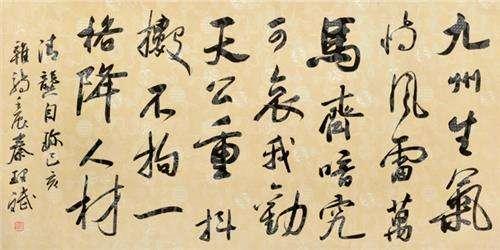 九州生氣
恃風雷萬
馬齊喑究
可哀我勸
天公重抖
擻不拘一
格降人材
清龔自珍己亥
雜詩壬辰秦理斌